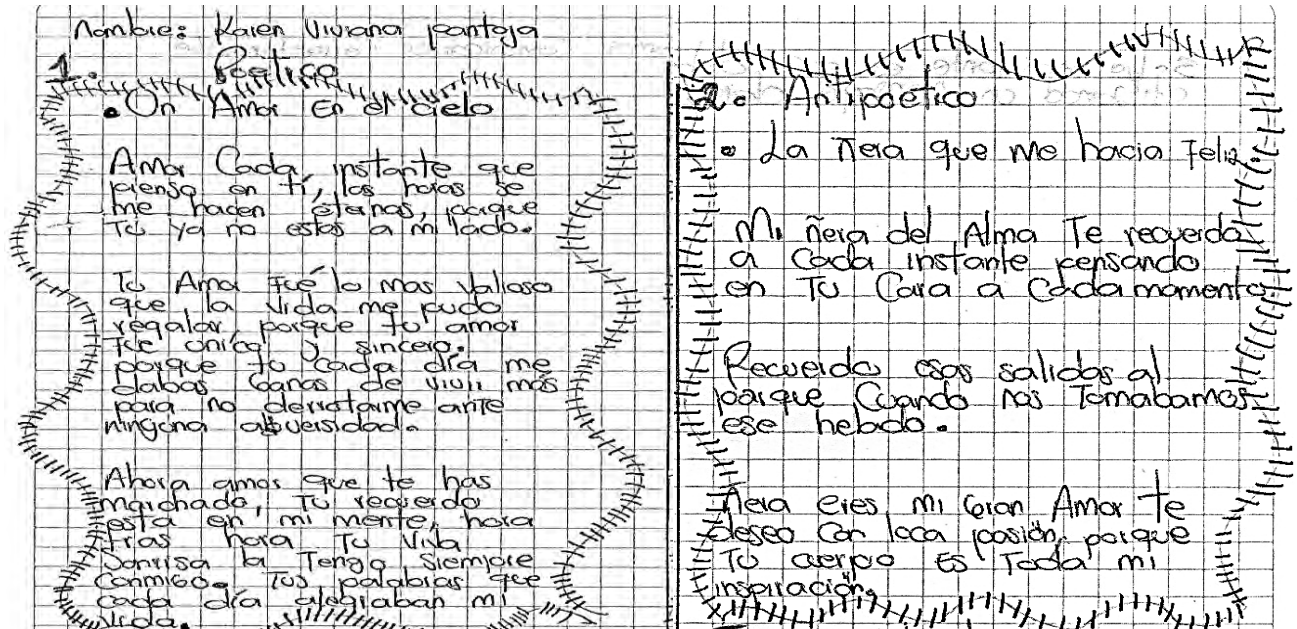 Nombre: Karen Viviana pantoja
1. Poetico
• Un Amor En el cielo
Amor Cada instante que
pienso en ti, las horas se
me hacen eternas, porque
Tu ya no estas a mi lado.
Tu Amor Fué lo mas Valioso
que la vida me pudo
regalar, porque tu amor
fue unico y sincero.
porque tu cada día me
dabas Ganas de vivir más
para no derrotarme ante
ninguna adversidad.
Ahora amor que te has
marchado, Tu recuerdo
esta en mi mente, hora
Tras hora Tu Viva
Sonrisa la Tengo Siempre
conmigo. Tus palabras que
cada día alegraban mi
vida.
2. Antipoetico
• La Ñera que me hacia Feliz.
Mi ñera del Alma Te recuerdo
a Cada instante pensando
en Tu Cara a Cada momento
Recuerdo esas salidas al
parque Cuando nos Tomabamos
ese helado.
Ñera eres mi Gran Amor te
deseo con loca pasión, porque
Tu cuerpo Es Toda mi
inspiración.